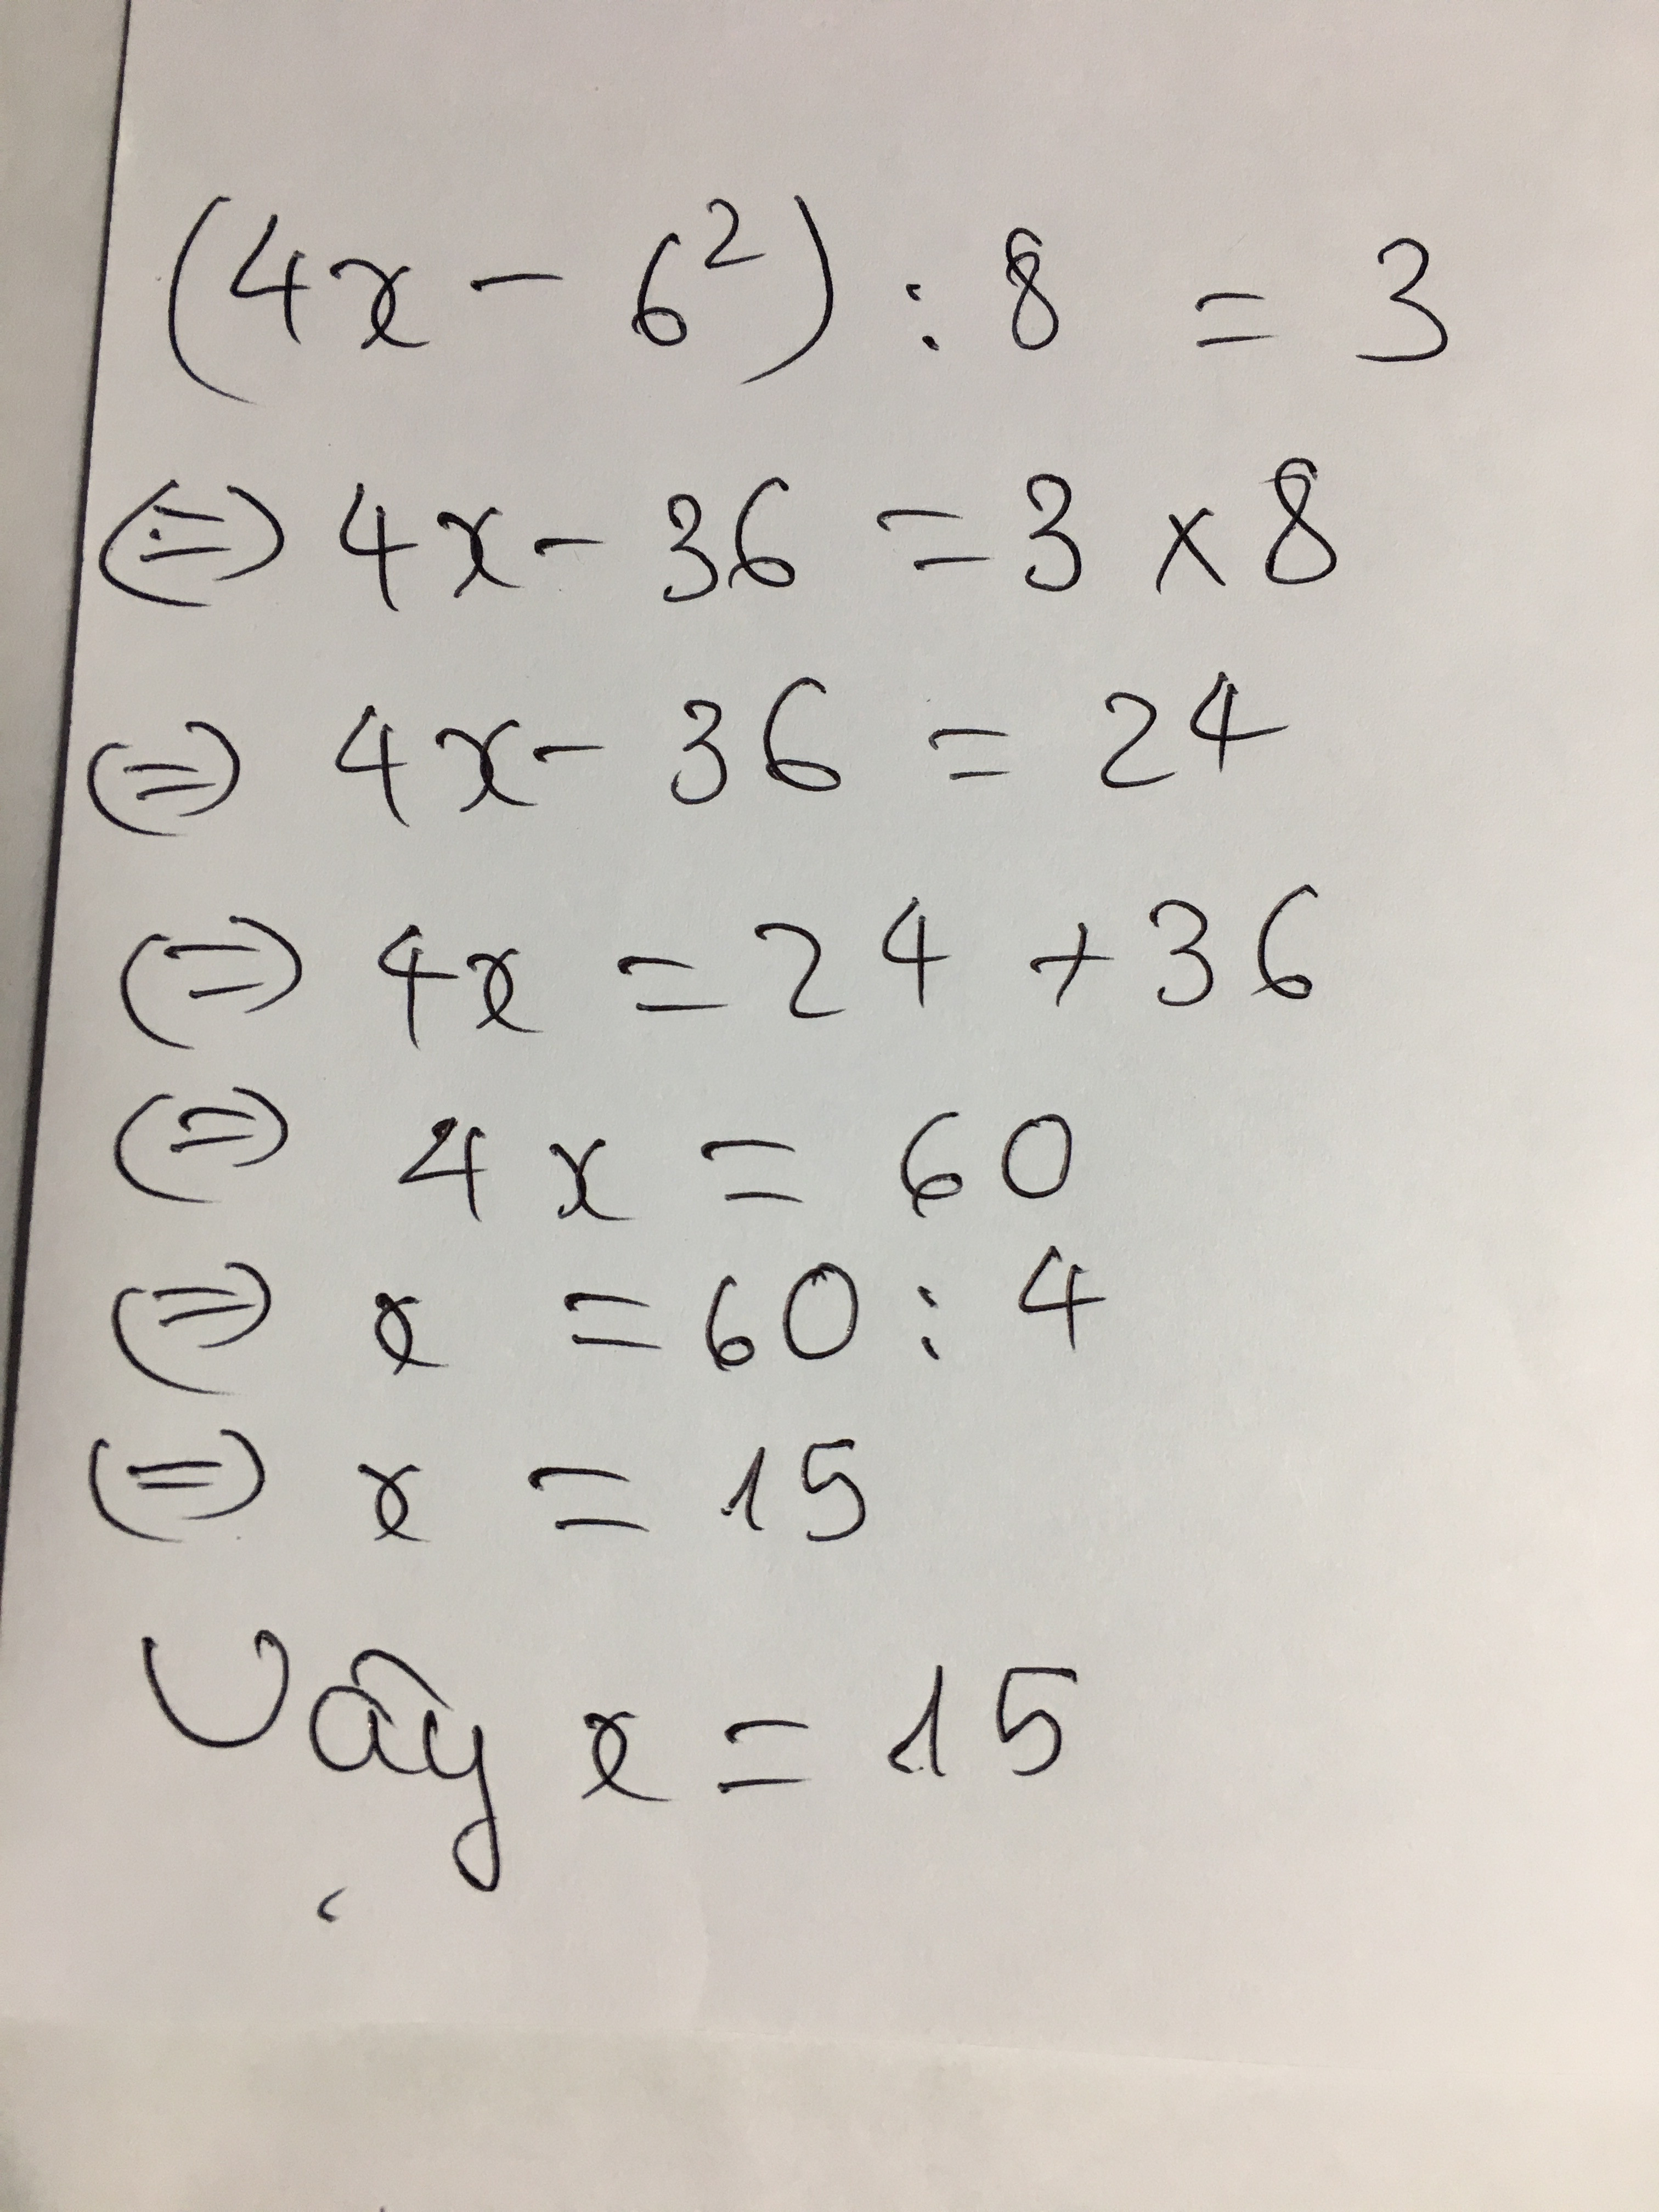 (4x - 6²) : 8 = 3
(=) 4x - 36 = 3 x 8
(=) 4x - 36 = 24
(=) 4x = 24 + 36
(=) 4x = 60
(=) x = 60 : 4
(=) x = 15
Vậy x = 15